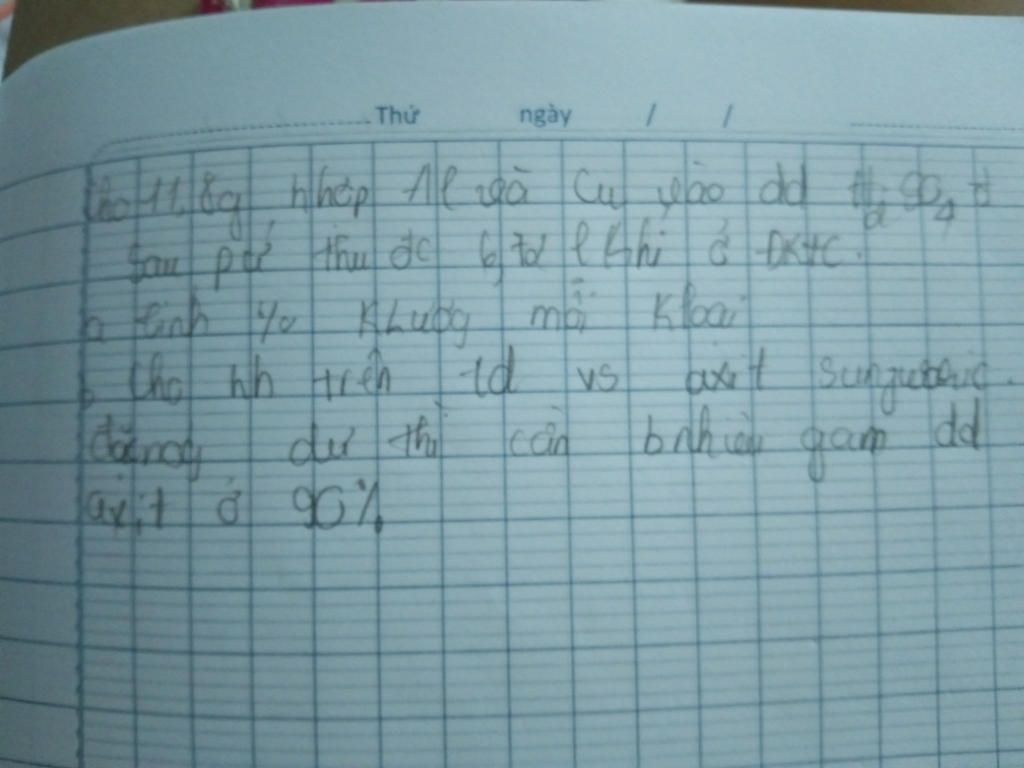 Thứ ngày / /
cho 11,8g hhợp Al và Cu vào dd H2SO4 đ
sau pứ thu đc 6,72 l khí ở ĐKTC.
a tính % KLượng mỗi Kloại
b Cho hh trên td vs axit sunfuaric.
đặcnóng dư thì cần bnhiêu gam dd
axit ở 90%